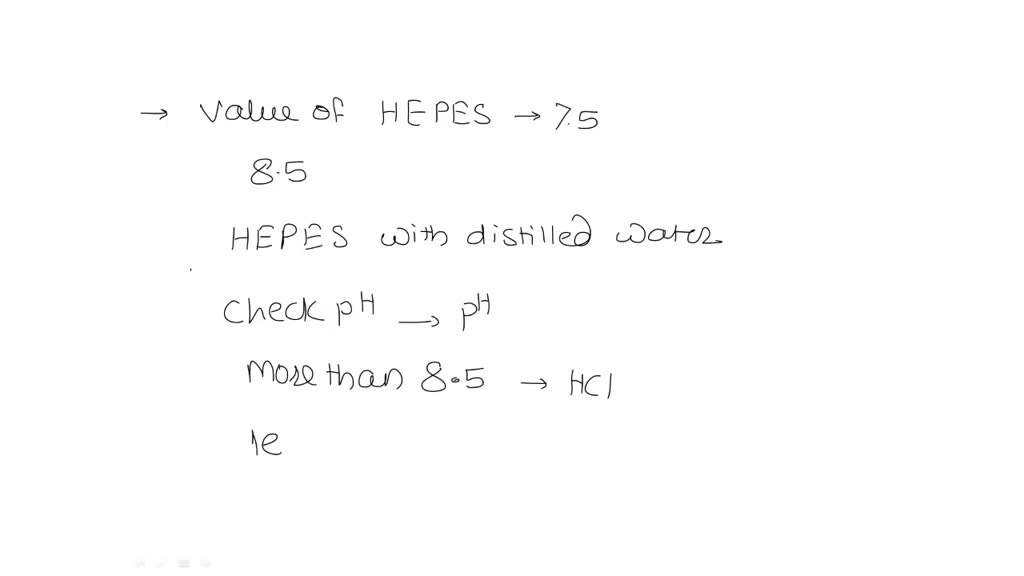 → Value of HEPES → 7.5
8.5
HEPES with distilled water
Check pH → pH
More than 8.5 → HCl
le